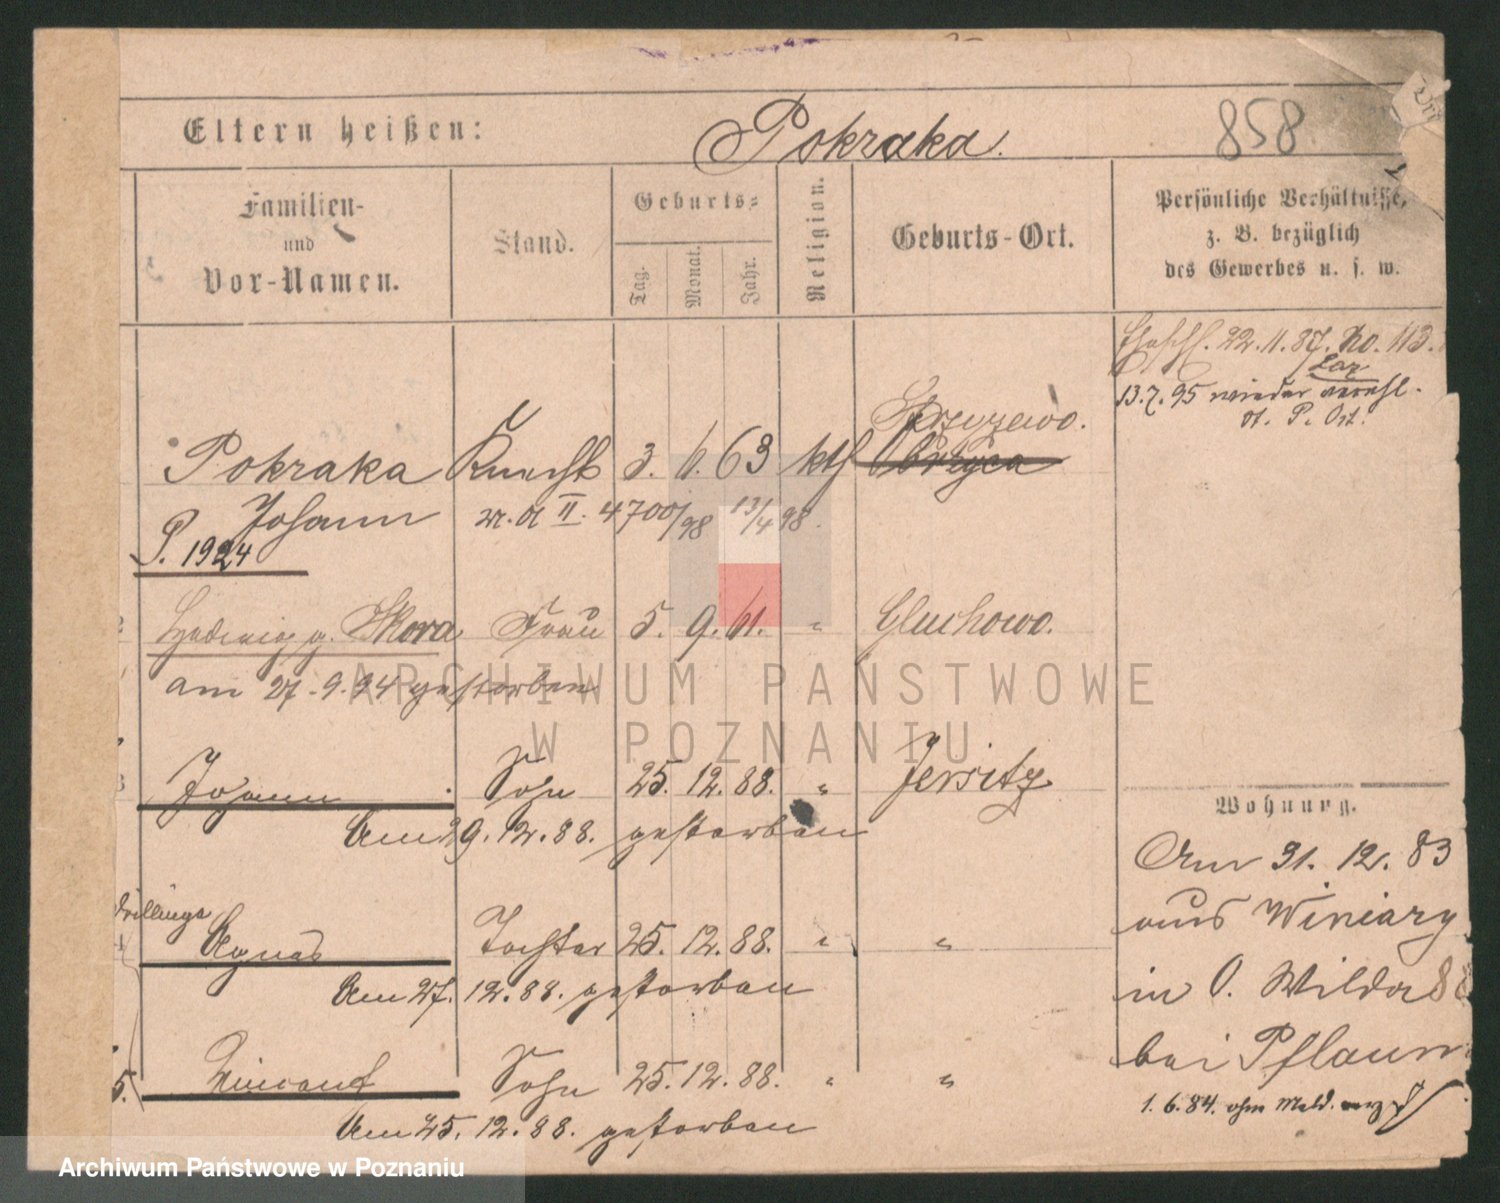 Eltern heißen: Pokraka. 858
Familien- und Vor-Namen.
Stand.
Geburts-
Tag. Monat. Jahr.
Religion.
Geburts-Ort.
Persönliche Verhältnisse,
z. B. bezüglich
des Gewerbes u. s. w.
22.11.87. No. 113.
13.7.95 wieder verehl.
St. P. Ost.
Krzyzewo.
Pokraka Knecht 3. 6. 63 kth Obrzyca
Johann 4700/98 13/4 98.
P. 1924
2 Hedwig g. Skora Frau 5. 9. 61. " Gluchowo.
am 27.9.94 gestorben
3 Johann Sohn 25. 12. 88. " Jersitz
Am 29. 12. 88. gestorben
Drillinge
4 Agnes Tochter 25. 12. 88. " "
Am 27. 12. 88. gestorben
5. Sohn 25. 12. 88. " "
Am 25. 12. 88. gestorben
Wohnung.
Am 31. 12. 83
aus Winiary
in O. Wilda 8
bei Pflaum
1. 6. 84. ohne Meld. verz
ARCHIWUM PAŃSTWOWE
W POZNANIU
Archiwum Państwowe w Poznaniu